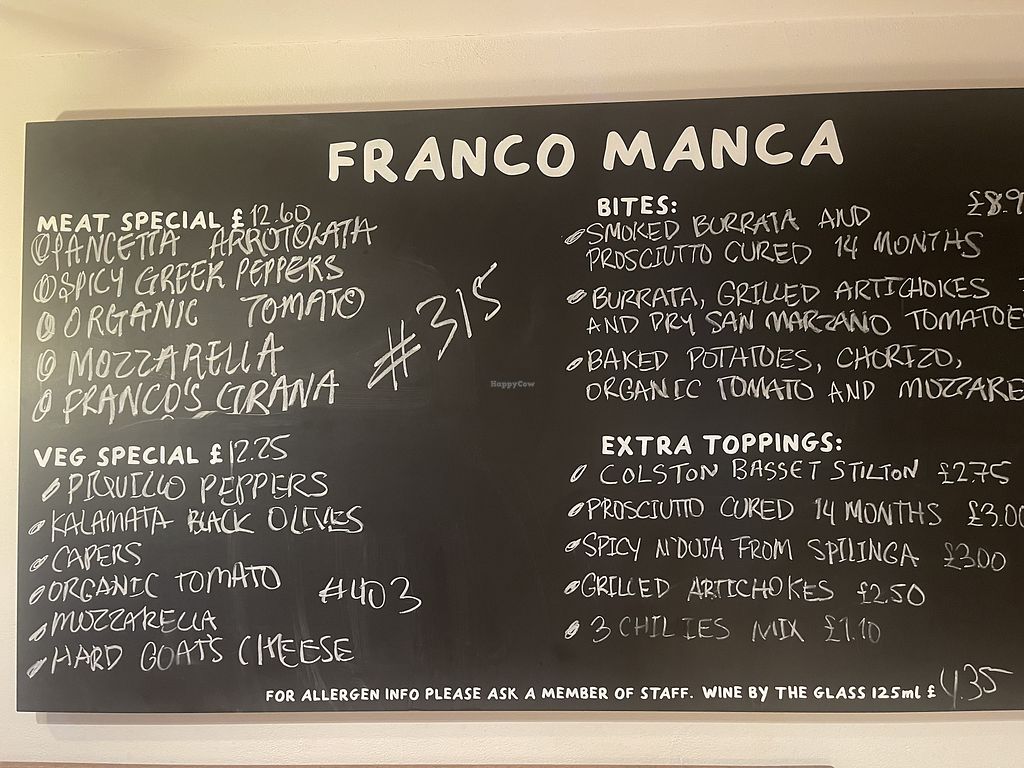 FRANCO MANCA
MEAT SPECIAL £12.60
PANCETTA ARROTOLATA
SPICY GREEK PEPPERS
ORGANIC TOMATO
MOZZARELLA
FRANCO'S GRANA
#315
VEG SPECIAL £12.25
PIQUILLO PEPPERS
KALAMATA BLACK OLIVES
CAPERS
ORGANIC TOMATO
MOZZARELLA
HARD GOAT'S CHEESE
#403
BITES: £8.9
SMOKED BURRATA AND
PROSCIUTTO CURED 14 MONTHS
BURRATA, GRILLED ARTICHOKES
AND DRY SAN MARZANO TOMATOE
BAKED POTATOES, CHORIZO,
ORGANIC TOMATO AND MOZZARE
EXTRA TOPPINGS:
COLSTON BASSET STILTON £2.75
PROSCIUTTO CURED 14 MONTHS £3.00
SPICY N'DUJA FROM SPILINGA £3.00
GRILLED ARTICHOKES £2.50
3 CHILIES MIX £1.10
FOR ALLERGEN INFO PLEASE ASK A MEMBER OF STAFF. WINE BY THE GLASS 125ml £4.35
HappyCow